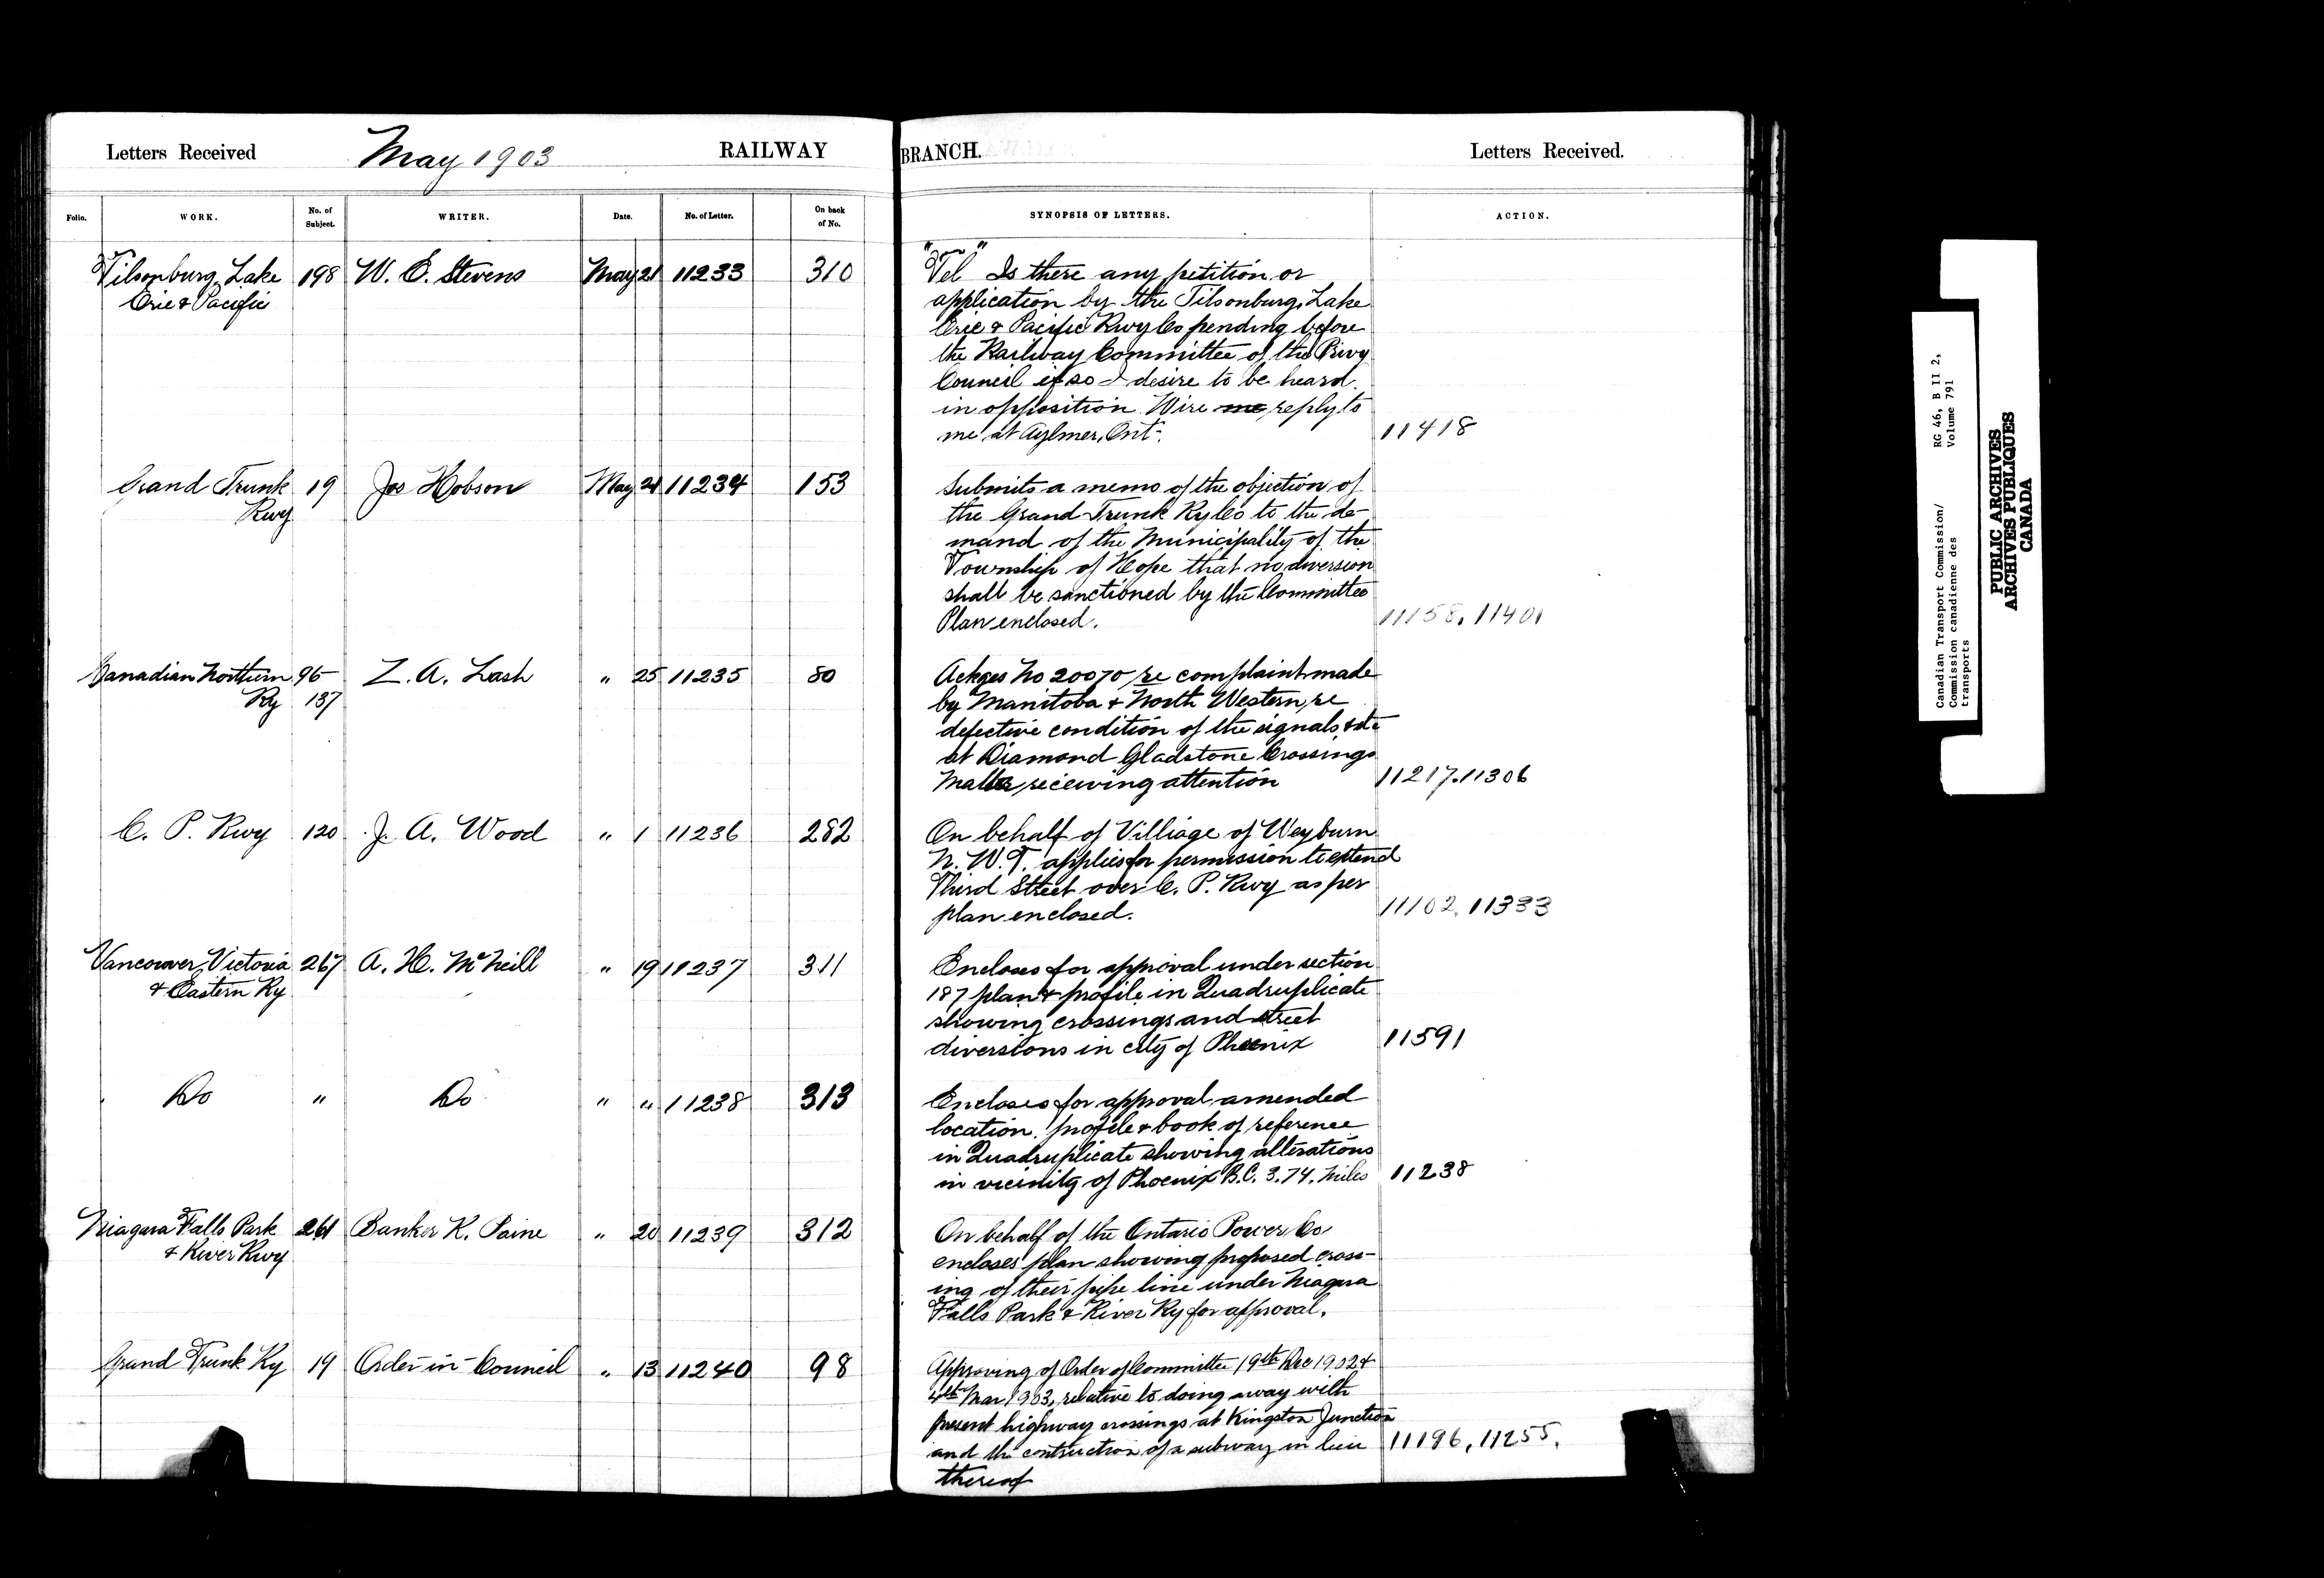 Letters Received May 1903 RAILWAY BRANCH. Letters Received.
Folio. WORK. No. of Subject. WRITER. Date. No. of Letter. On back of No. SYNOPSIS OF LETTERS. ACTION.
Tilsonburg, Lake 198 W. E. Stevens May 21 11233 310 "Tel" Is there any petition or
Erie & Pacific application by the Tilsonburg, Lake
Erie & Pacific Rwy Co pending before
the Railway Committee of the Privy
Council if so I desire to be heard
in opposition Wire me reply to
me at Aylmer, Ont. 11418
Grand Trunk 19 Jos Hobson May 21 11234 153 Submits a memo of the objection of
Rwy the Grand Trunk Ry Co to the de-
mand of the Municipality of the
Township of Hope that no diversion
shall be sanctioned by the Committee
Plan enclosed. 11158, 11401
Canadian Northern 95 Z. A. Lash " 25 11235 80 Ackges No 20070 re complaint made
Ry 137 by Manitoba & North Western, re
defective condition of the signals &ct
at Diamond Gladstone Crossings
Matter receiving attention 11217. 11306
C. P. Rwy 120 J. A. Wood " 1 11236 282 On behalf of Villiage of Weyburn
N. W. T. applies for permission to extend
Third Street over C. P. Rwy as per
plan enclosed. 11102, 11333
Vancouver, Victoria 267 A. H. McNeill " 19 11237 311 Encloses for approval under section
& Eastern Ry 187 plan & profile in Quadruplicate
showing crossings and street
diversions in city of Phoenix 11591
Do " Do " " 11238 313 Encloses for approval amended
location, profile & book of reference
in Quadruplicate showing alterations
in vicinity of Phoenix B.C. 3.74. miles 11238
Niagara Falls Park 261 Banker K. Paine " 20 11239 312 On behalf of the Ontario Power Co
& River Rwy encloses plan showing proposed cross-
ing of their pipe line under Niagara
Falls Park & River Ry for approval.
Grand Trunk Ry 19 Order-in-Council " 13 11240 98 Approving of Order of Committee 19th Dec 1902 &
4th Mar 1903, relative to doing away with
present highway crossings at Kingston Junction
and the contruction of a subway in lieu 11196, 11255.
thereof
Canadian Transport Commission/ RG 46, B II 2,
Commission canadienne des Volume 791
transports
PUBLIC ARCHIVES
ARCHIVES PUBLIQUES
CANADA